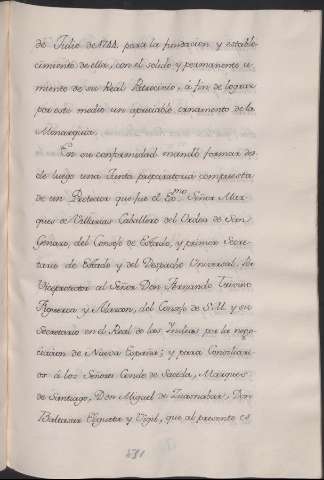 de Julio de 1744. para la fundacion y estable-
cimiento de ella, con el solido y permanente ci-
miento de su Real Patrocinio, à fin de lograr
por este medio un apreciable ornamento de la
Monarquia.
En su conformidad mandó formar des-
de luego una Junta preparatoria compuesta
de un Protector que fue el Exmo Señor Mar-
ques de Villarias Caballero del Orden de San
Genaro, del Consejo de Estado, y primer Secre-
tario de Estado y del Despacho Universal. Por
Viceprotector al Señor Don Fernando Triviño
Figueroa y Alarcon, del Consejo de S.M. y su
Secretario en el Real de las Indias por la nego-
ciacion de Nueva España; y para Consiliari-
os à los Señores Conde de Saceda, Marques
de Santiago, Don Miguel de Zuaznabar, Don
Baltasar Elgueta y Vigil, que al presente es